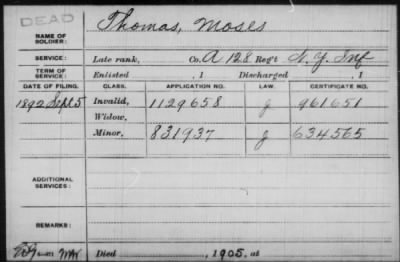 DEAD
Thomas, Moses
NAME OF SOLDIER:
SERVICE: Late rank, Co. A 128 Reg't N.Y. Inf
TERM OF SERVICE: Enlisted , 1 Discharged , 1
DATE OF FILING. CLASS. APPLICATION NO. LAW. CERTIFICATE NO.
1892 Sept 5 Invalid, 1129658 J 961651
Widow,
Minor, 831937 J 634565
ADDITIONAL SERVICES:
REMARKS:
Died , 1905, at